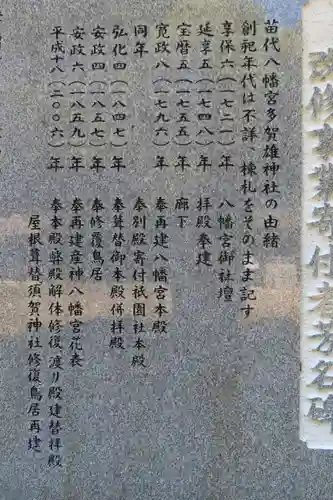 改修事業寄付者芳名碑
苗代八幡宮多賀雄神社の由緒
創祀年代は不詳、棟札をそのまま記す
享保六(一七二一)年 八幡宮御社壇
延享五(一七四八)年 拝殿奉建
宝暦五(一七五五)年 廊下
寛政八(一七九六)年 奉再建八幡宮本殿
同年 奉別殿寄付祇園社本殿
弘化四(一八四七)年 奉葺替御本殿併拝殿
安政四(一八五七)年 奉修覆鳥居
安政六(一八五九)年 奉再建産神八幡宮花表
平成十八(二〇〇六)年 奉本殿幣殿解体修復渡り殿建替拝殿
屋根葺替須賀神社修復鳥居再建